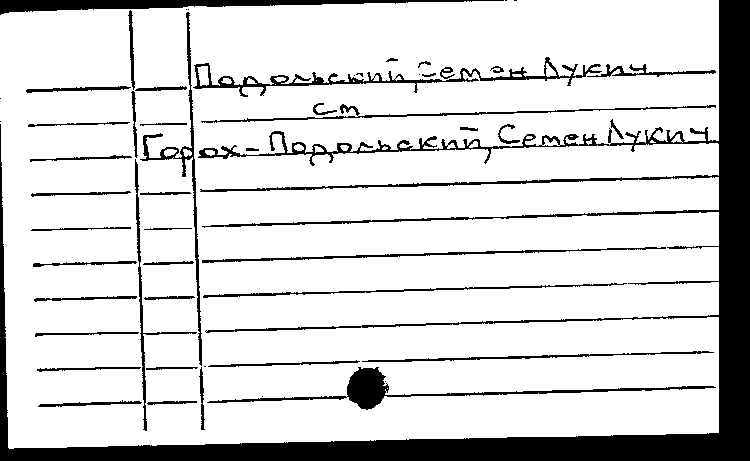 Подольский, Семен Лукич
см
Горох-Подольский, Семен Лукич